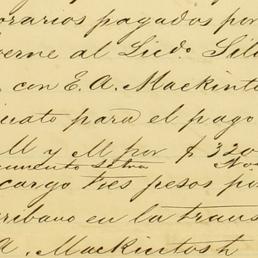 orarios pagados por
verne al Licdo. Sil
con E. A. Mackint
para el pago
M y M por $ 320
cargo tres pesos po
cribano en la trans
A. Mackintosh